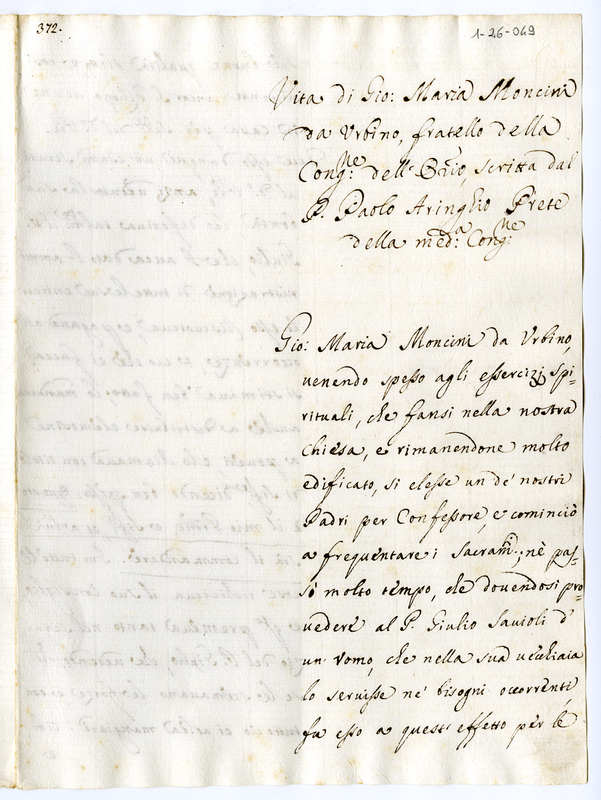 372.
1-26-049
Vita di Gio: Maria Moncini
da Urbino, fratello della
Cong:ne dell' Orio, scritta dal
P. Paolo Aringhio Prete
della med:a Cong:ne
Gio: Maria Moncini da Urbino,
venendo spesso agli essercizj spi=
rituali, che fansi nella nostra
Chiesa, e rimanendone molto
edificato, si elesse un de' nostri
Padri per Confessore, e cominciò
a frequentare i Sacram:ti; nè pas=
sò molto tempo, che dovendosi pro=
vedere al P. Giulio Savioli d'
un' Uomo, che nella sua vecchiaia
lo servisse ne' bisogni occorrenti
fu esso a quest' effetto per le